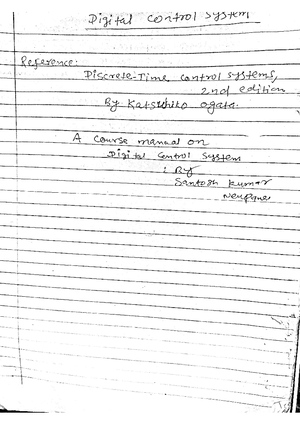 Digital control system
Reference:
Discrete-Time control systems,
2nd edition
By Katsuhiko ogata.
A course manual on
Digital Control System
: By
Santosh kumar